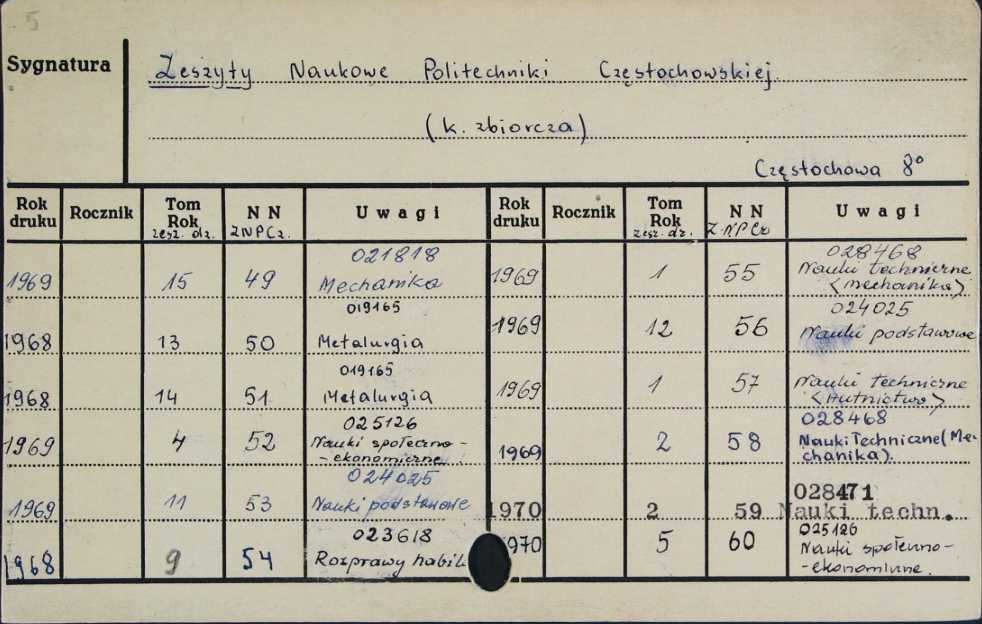 5
Sygnatura
Zeszyty Naukowe Politechniki Częstochowskiej.
(k. zbiorcza)
Częstochowa 8°
Rok druku Rocznik Tom Rok zesz. dz. N N ZNPCz. Uwagi Rok druku Rocznik Tom Rok zesz. dz. N N Z.N.P Cz Uwagi
021818
1969 15 49 Mechanika
019165
1968 13 50 Metalurgia
019165
1968 14 51 Metalurgia
025126
1969 4 52 Nauki społeczno-
-ekonomiczne.
024025
1969 11 53 Nauki podstawowe
023618
1968 9 54 Rozprawy habil.
028468
1969 1 55 Nauki techniczne
<mechanika>
024025
1969 12 56 Nauki podstawowe
1969 1 57 Nauki techniczne
<Hutnictwo>
028468
1969 2 58 Nauki Techniczne (Me-
chanika).
028471
1970 2 59 Nauki techn.
025126
1970 5 60 Nauki społeczno-
-ekonomiczne.